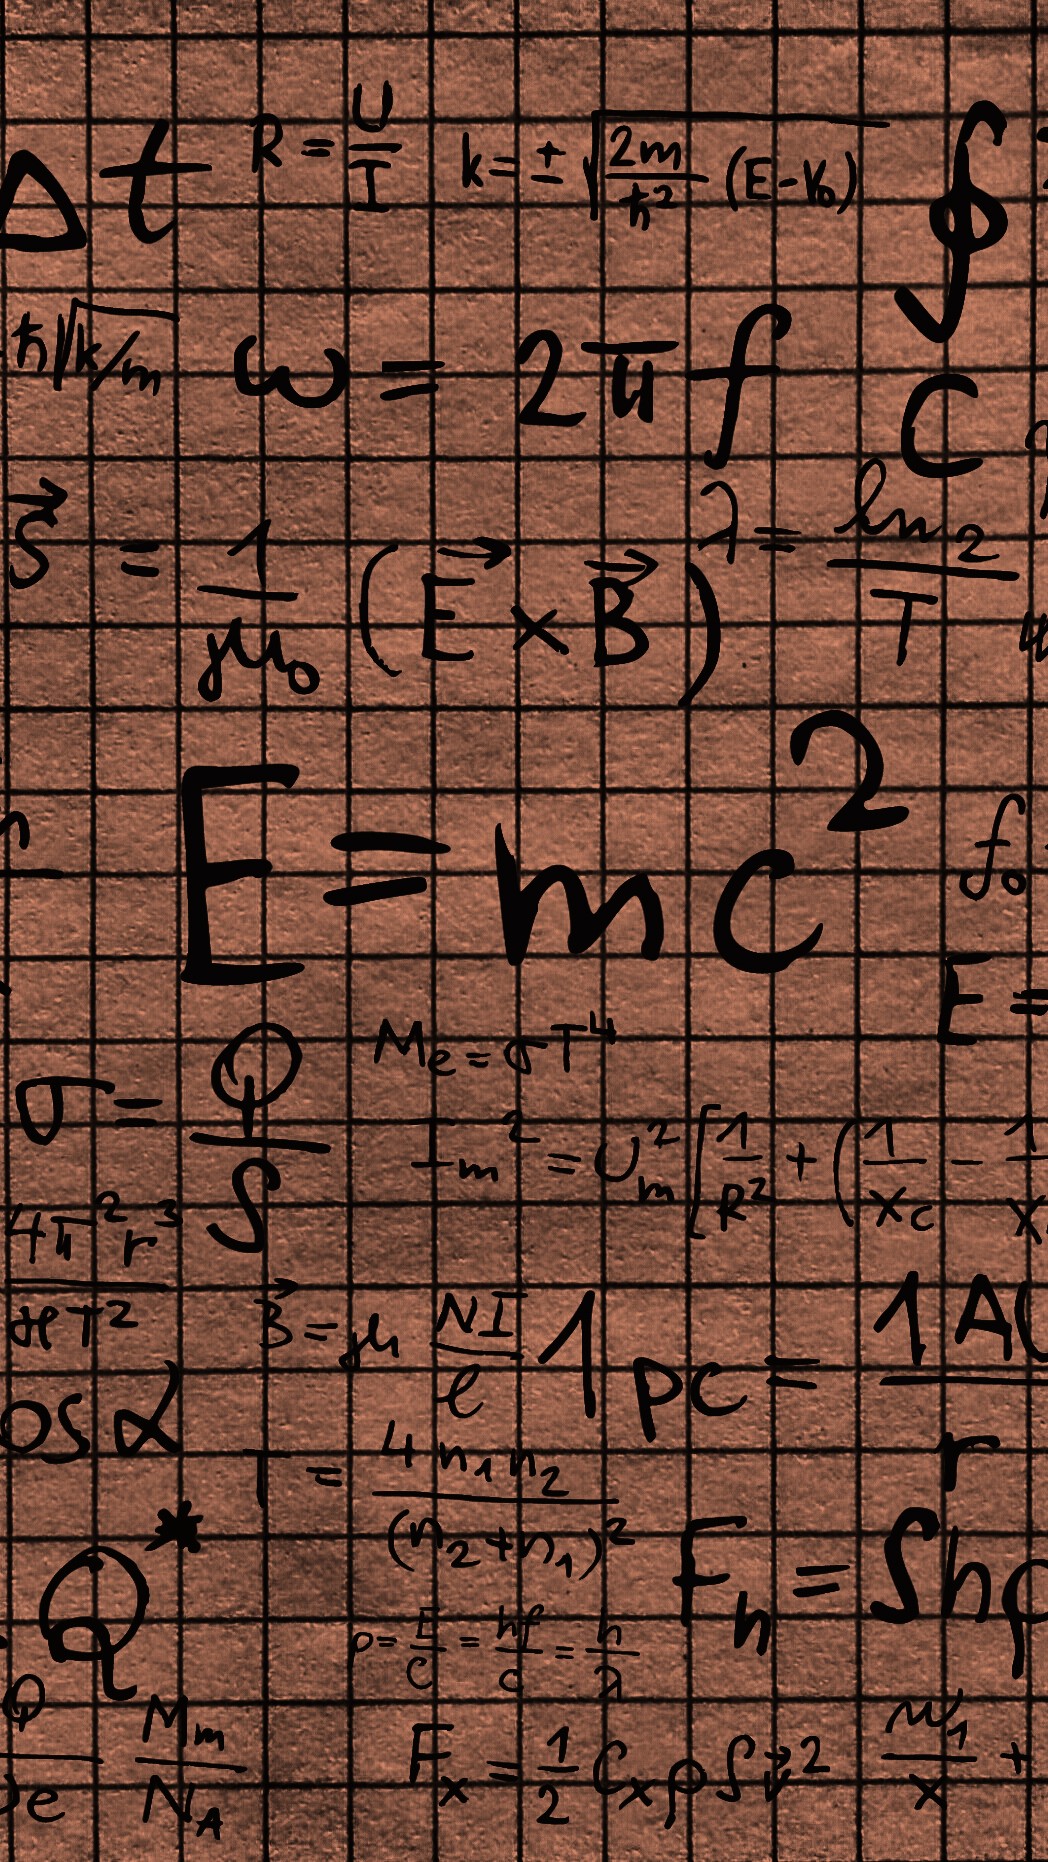 Δt R = U/I k = ± √(2m/ħ² (E-V₀)) ∮
ħ√(k/m) ω = 2πf C
S⃗ = 1/μ₀ (E⃗ × B⃗) λ = ln 2/T
E = mc² f₀
E =
σ = Q/S Mₑ = σT⁴
Iₘ² = Uₘ² [1/R² + (1/X_C - 1/X
4π²r³/ϰT² B⃗ = μ NI/ℓ 1 pc = 1 AU/r
os α T = 4 n₁ n₂/(n₂+n₁)²
Q* Fₕ = Shρ
p = E/c = hf/c = h/λ
Q/e Mₘ/N_A Fₓ = 1/2 CₓρSv⃗² n₁/x +